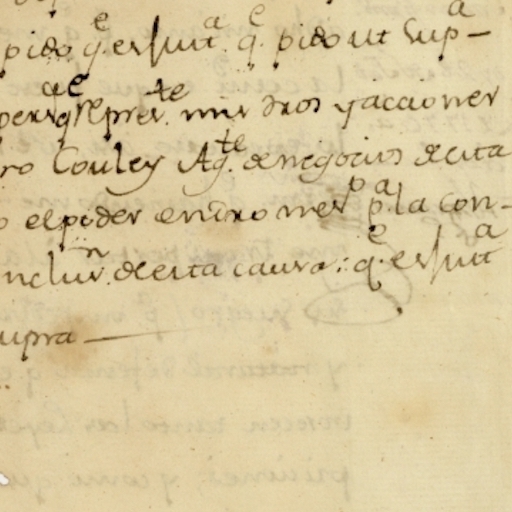 pido q.e es just.a q.e pido ut sup-
q.e represte. mis dros y acciones
ro Couley Ag.te de negocios de esta
o el poder en dro nes.o p.a la con-
nclus.n de esta causa: q.e es just.a
upra